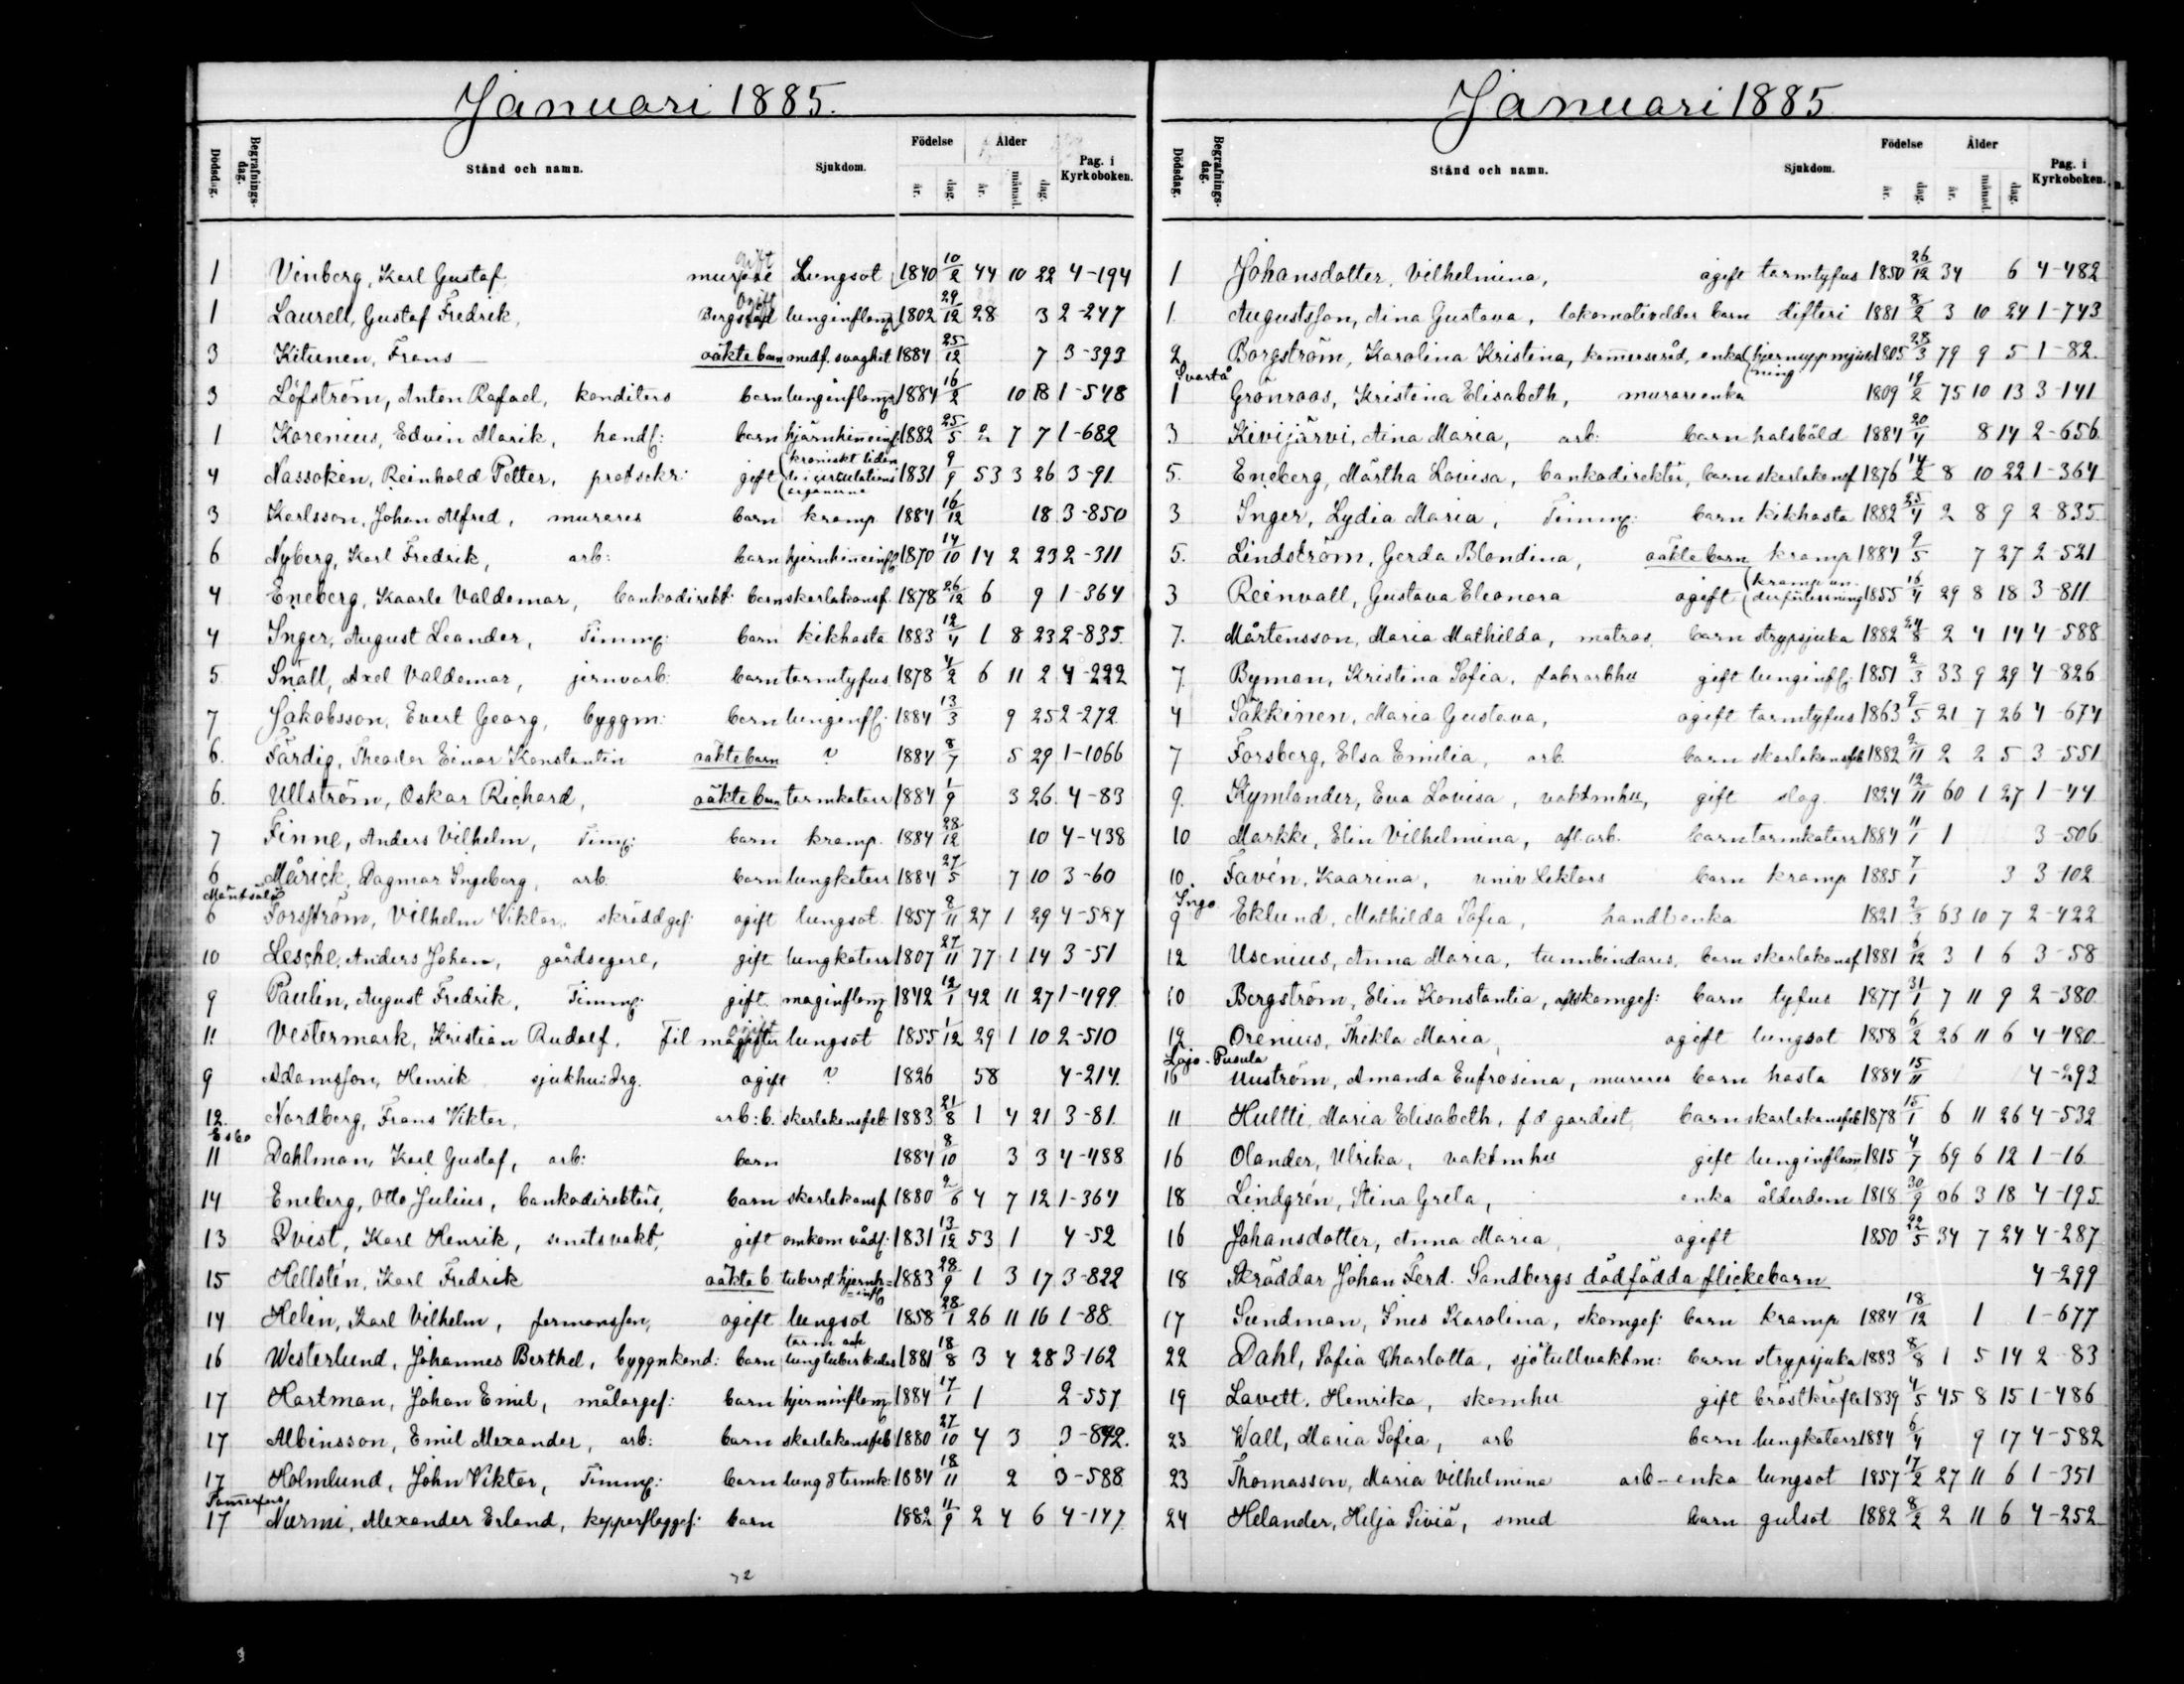 Januari 1885.
Dödsdag. Begrafningsdag. Stånd och namn. Sjukdom. Födelse år. dag. Ålder år. månad. dag. Pag. i Kyrkoboken.
1 Vinberg, Karl Gustaf, murare gift Lungsot 1840 10/2 44 10 22 4-194
1 Laurell, Gustaf Fredrik, Bergsråd lunginflam 1802 29/12 28 3 2-247
3 Kitunen, Frans oäkta barn medf. svaghet 1884 25/12 7 3-393
3 Löfström, Anton Rafael, konditors barn lunginflam 1884 16/2 10 18 1-548
1 Korenius, Edvin Marik, handl: barn hjärnhinneinfl 1882 25/5 2 7 7 1-682
4 Nassokin, Reinhold Petter, protsekr: gift (kroniskt liden de i cirkulations organerna 1831 9/9 53 3 26 3-91
3 Karlsson, Johan Alfred, murares barn kramp 1884 16/12 18 3-850
6 Nyberg, Karl Fredrik, arb: barn hjernhinneinfl 1870 14/10 14 2 23 2-311
4 Eneberg, Kaarle Valdemar, bankodirekt: barn skarlakansf. 1878 26/12 6 9 1-364
4 Inger, August Leander, Timmg: barn kikhosta 1883 12/4 1 8 23 2-835
5 Snäll, Axel Valdemar, jernvarb: barn tarmtyfus 1878 4/2 6 11 2 4-222
7 Jakobsson, Evert Georg, byggm: barn lunginfl: 1884 13/3 9 25 2-272
6. Färdig, Theodor Einar Konstantin oäkta barn ? 1884 8/7 5 29 1-1066
6. Ullström, Oskar Richard, oäkta barn tarmkatarr 1884 1/9 3 26 4-83
7 Finne, Anders Vilhelm, Timg: barn kramp. 1884 28/12 10 4-438
6 Mårick, Dagmar Ingeborg, arb. barn lungkatarr 1884 27/5 7 10 3-60
Mäntsälä
6 Forsström, Vilhelm Viktor, skräddgef: ogift lungsot 1857 8/11 27 1 29 4-587
10 Lesche, Anders Johan, gårdsegare, gift lungkatarr 1807 27/11 77 1 14 3-51
9 Paulin, August Fredrik, Timmg: gift maginflam 1842 12/1 42 11 27 1-499
11 Vestermark, Kristian Rudolf, fil magister ogift lungsot 1855 1/12 29 1 10 2-510
9 Adamsson, Henrik sjukhus:drg. ogift ? 1826 58 4-214
12. Nordberg, Frans Viktor, arb: b. skarlakansfeb 1883 21/8 1 4 21 3-81
Esbo
11 Dahlman, Karl Gustaf, arb: barn 1884 8/10 3 3 4-488
14 Eneberg, Otto Julius, bankodirektörs, barn skarlakansf 1880 2/6 4 7 12 1-364
13 Qvist, Karl Henrik, senatsvakt, gift omkom vådl: 1831 13/12 53 1 4-52
15 Hellstén, Karl Fredrik oäkta b. tuberd hjernh=infl 1883 28/9 1 3 17 3-822
14 Helin, Karl Vilhelm, formansson, ogift lungsot 1858 28/1 26 11 16 1-88
16 Westerlund, Johannes Berthel, byggnkond: barn tarm och lungtuberkulos 1881 18/8 3 4 28 3-162
17 Hartman, Johan Emil, målargef: barn hjerninflam 1884 17/1 1 2-557
17 Albinsson, Emil Alexander, arb: barn skarlakansfeb 1880 27/10 4 3 3-892.
17 Holmlund, John Viktor, Timmg: barn lung & tarmk: 1884 18/11 2 3-588
Tammerfors
17 Nurmi, Alexander Erland, kopparslaggef: barn 1882 11/9 2 4 6 4-147
32
Januari 1885
Dödsdag. Begrafningsdag. Stånd och namn. Sjukdom. Födelse år. dag. Ålder år. månad. dag. Pag. i Kyrkoboken.
1 Johansdotter, Vilhelmina, ogift tarmtyfus 1850 26/12 34 6 4-482
1 Augustsson, Aina Gustava, lokomotiveldar barn difteri 1881 8/2 3 10 24 1-743
2 Borgström, Karolina Kristina, komerseråd, enka (hjernuppmjukning 1805 28/3 79 9 5 1-82
Svartå
1 Grönroos, Kristina Elisabeth, murareenka 1809 19/2 75 10 13 3-141
3 Kivijärvi, Aina Maria, arb: barn halsböld 1884 20/4 8 14 2-656
5. Eneberg, Märtha Lovisa, bankodirektör, barn skarlakansf 1876 14/2 8 10 22 1-364
3 Inger, Lydia Maria, Timmg: barn kikhosta 1882 25/4 2 8 9 2-835
5. Lindström, Gerda Blondina, oäkta barn kramp 1884 9/5 7 27 2-521
3 Reinvall, Gustava Eleonora ogift (kramp un- der förlossning 1855 16/4 29 8 18 3-811
7. Mårtensson, Maria Mathilda, matros. barn strypsjuka 1882 24/8 2 4 14 4-588
7 Byman, Kristina Sofia, fabrarbhu gift lunginfl: 1851 9/3 33 9 29 4-826
4 Säkkinen, Maria Gustava, ogift tarmtyfus 1863 9/5 21 7 26 4-674
7 Forsberg, Elsa Emilia, arb. barn skarlakansfeb 1882 2/11 2 2 5 3-551
9. Kymlander, Eva Lovisa, vaktmhu, gift slag. 1824 12/11 60 1 27 1-44
10 Markke, Elin Vilhelmina, afl arb. barn tarmkatarr 1884 11/1 1 3-506
10. Favén, Kaarina, univ lektors barn kramp 1885 7/1 3 3-102
Ingo
9 Eklund, Mathilda Sofia, handl enka 1821 2/3 63 10 7 2-422
12 Usenius, Anna Maria, tunnbindares, barn skarlakansf 1881 6/12 3 1 6 3-58
10 Bergström, Elin Konstantia, afl skomgef: barn tyfus 1877 31/1 7 11 9 2-380
12 Orenius, Thekla Maria, ogift lungsot 1858 6/2 26 11 6 4-480
Lojo-Pusula
16 Unström, Amanda Eufrosina, murares barn hosta 1884 15/11 4-293
11 Hultti, Maria Elisabeth, f d gardist, barn skarlakansfeb 1878 15/1 6 11 26 4-532
16 Olander, Ulrika, vaktmhu gift lunginflam 1815 4/7 69 6 12 1-16
18 Lindgrén, Stina Greta, enka ålderdom 1818 30/9 66 3 18 4-195
16 Johansdotter, Anna Maria, ogift 1850 22/5 34 7 24 4-287
18 Skräddar Johan Ferd. Sandbergs dödfödda flickebarn 4-299
17 Sundman, Ines Karolina, skomgef: barn kramp 1884 18/12 1 1-677
22 Dahl, Sofia Charlotta, sjötullvaktm: barn strypsjuka 1883 8/8 1 5 14 2-83
19 Lavett, Henrika, skomhu gift bröstkräfta 1839 4/5 45 8 15 1-486
23 Wall, Maria Sofia, arb barn lungkatarr 1884 6/4 9 17 4-582
23 Thomasson, Maria Vilhelmina arb-enka lungsot 1857 17/2 27 11 6 1-351
24 Helander, Hilja Siviä, smed barn gulsot 1882 8/2 2 11 6 4-252